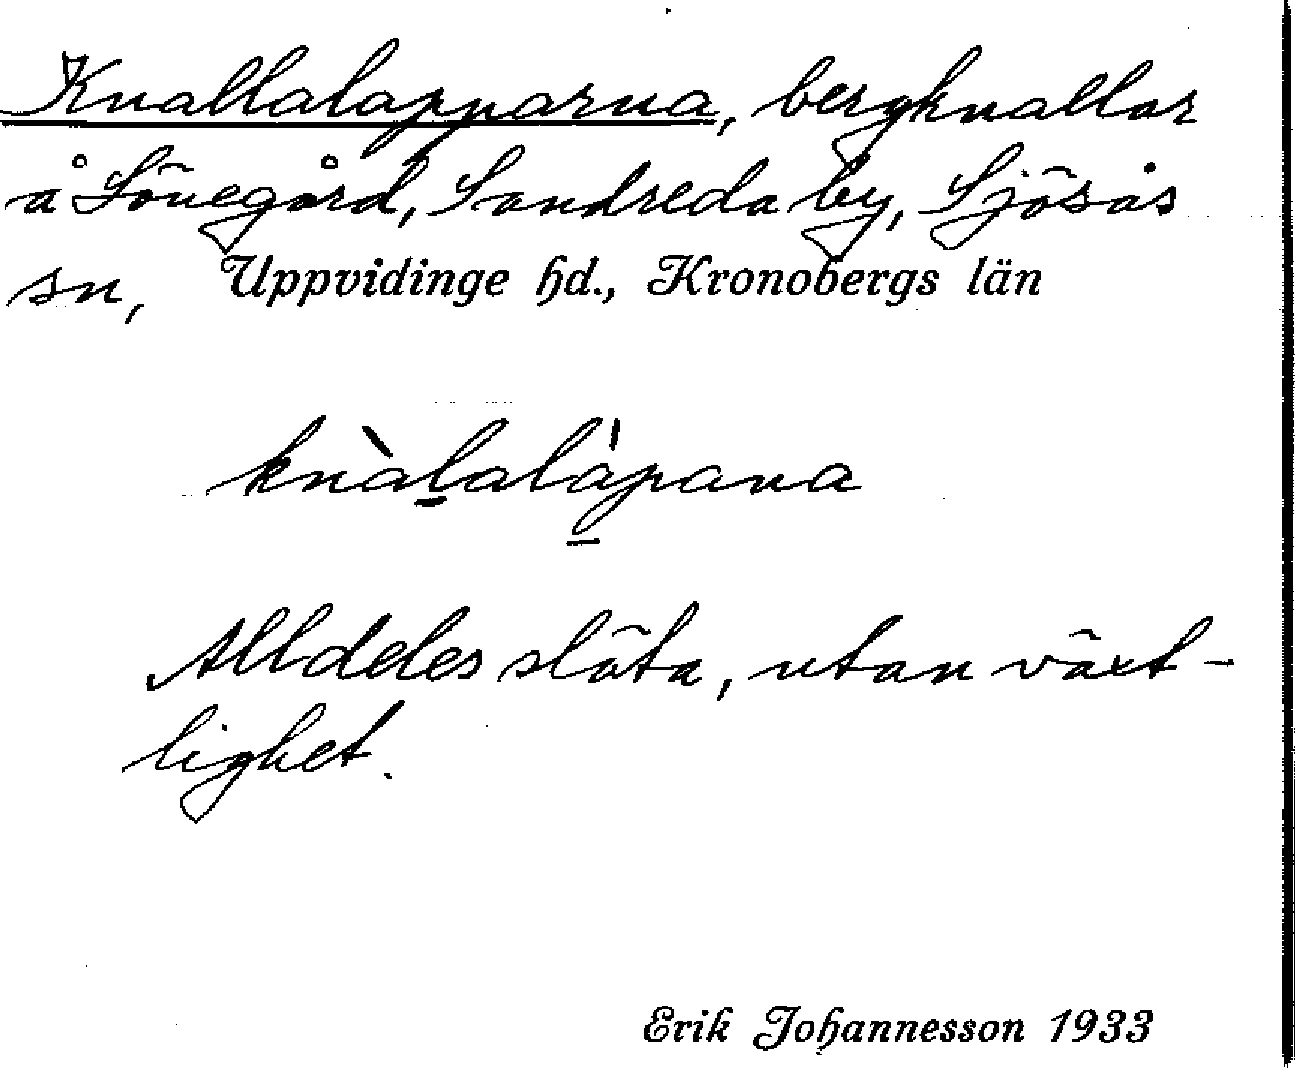 Knallalapparna, bergknallar
å Sönegård, Sandreda by, Sjösås
sn, Uppvidinge hd., Kronobergs län
knàlalápana
Alldeles släta, utan växt-
lighet.
Erik Johannesson 1933